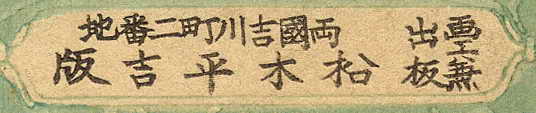 画工兼
出板
両國吉川町二番地
松木平吉版